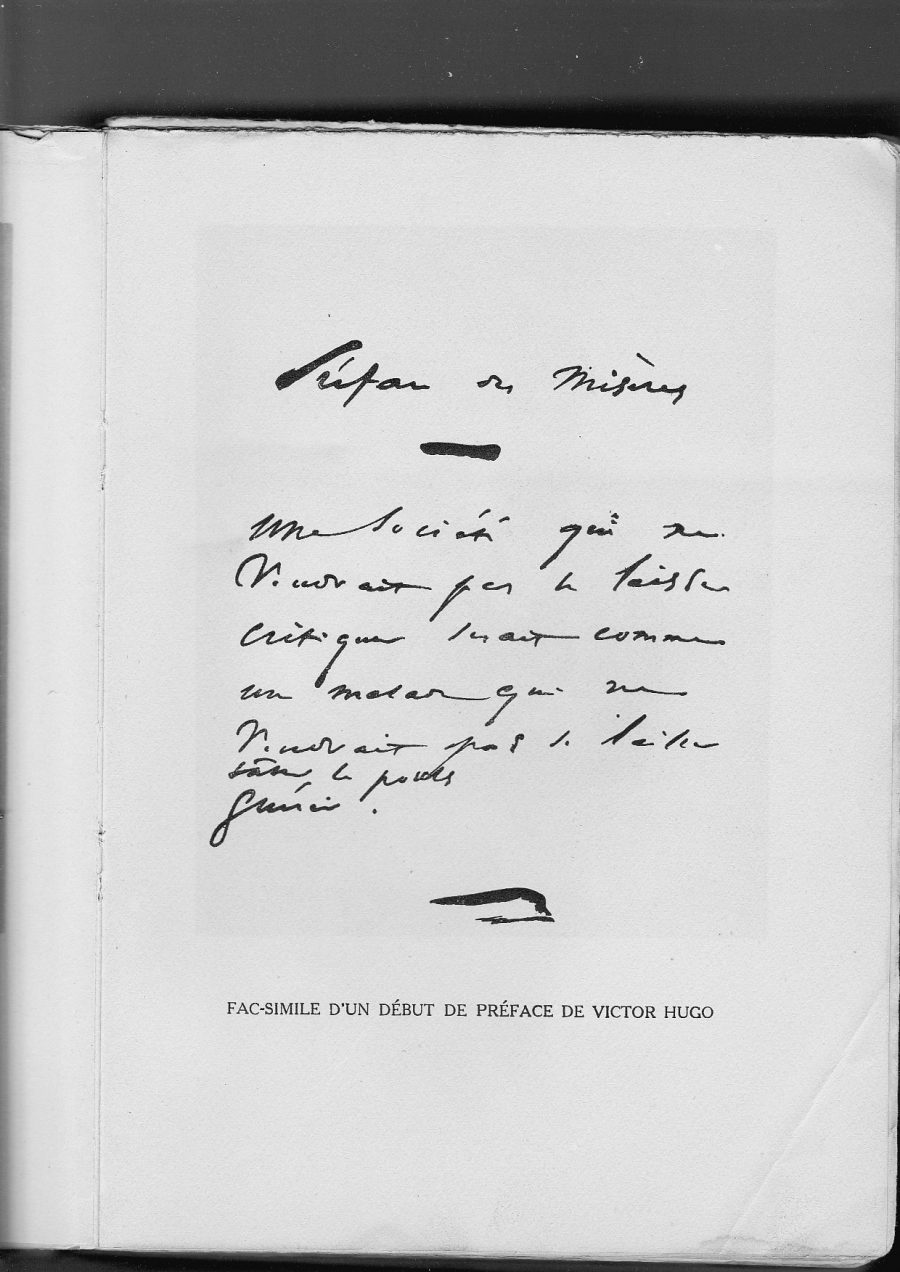 Préface des Misères
Une Société qui ne
Voudrait pas se laisser
critiquer serait comme
un malade qui ne
Voudrait pas se laisser
tâter le pouls
Guérir.
FAC-SIMILE D'UN DÉBUT DE PRÉFACE DE VICTOR HUGO